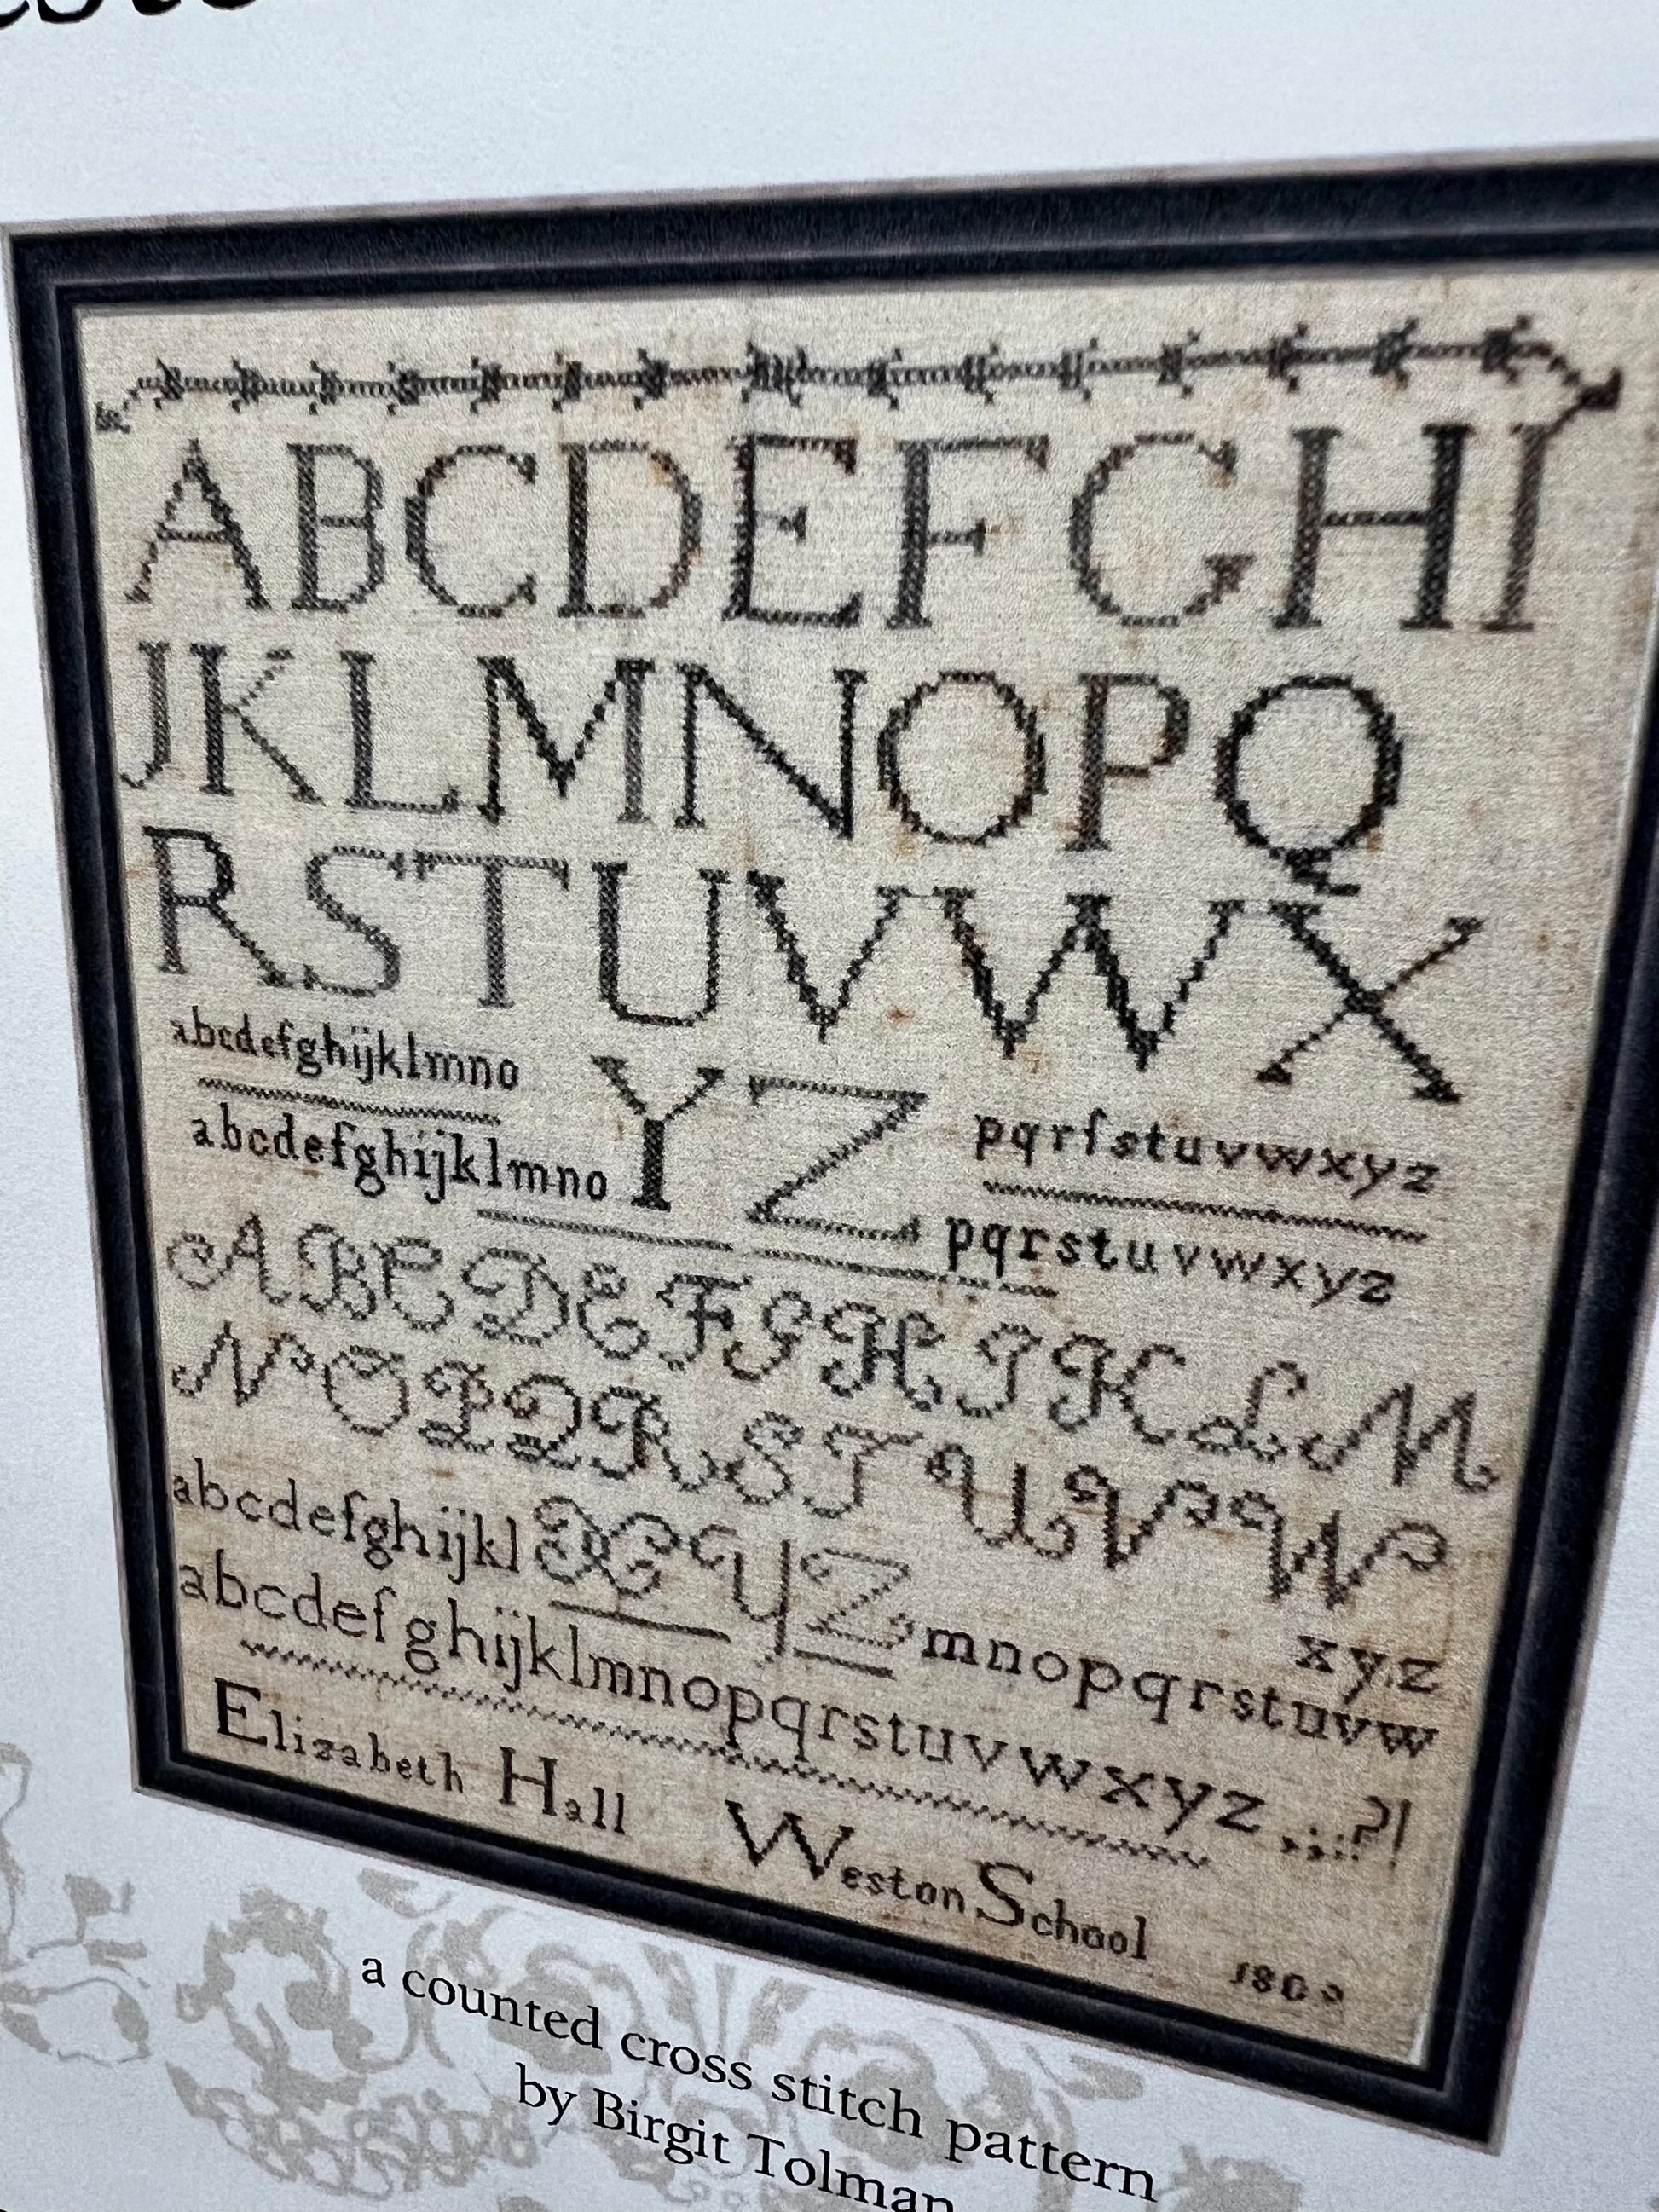 ABCDEFGHI
JKLMNOPQ
RSTUVWX
abcdefghijklmno
YZ
pqrſstuvwxyz
abcdefghijklmno
pqrstuvwxyz
ABCDEFGHIKLM
NOPQRSTUVW
abcdefghijkl
XYZ
mnopqrstuvw
xyz
abcdefghijklmnopqrstuvwxyz,;:?!
Elizabeth Hall Weston School
a counted cross stitch pattern
by Birgit Tolman